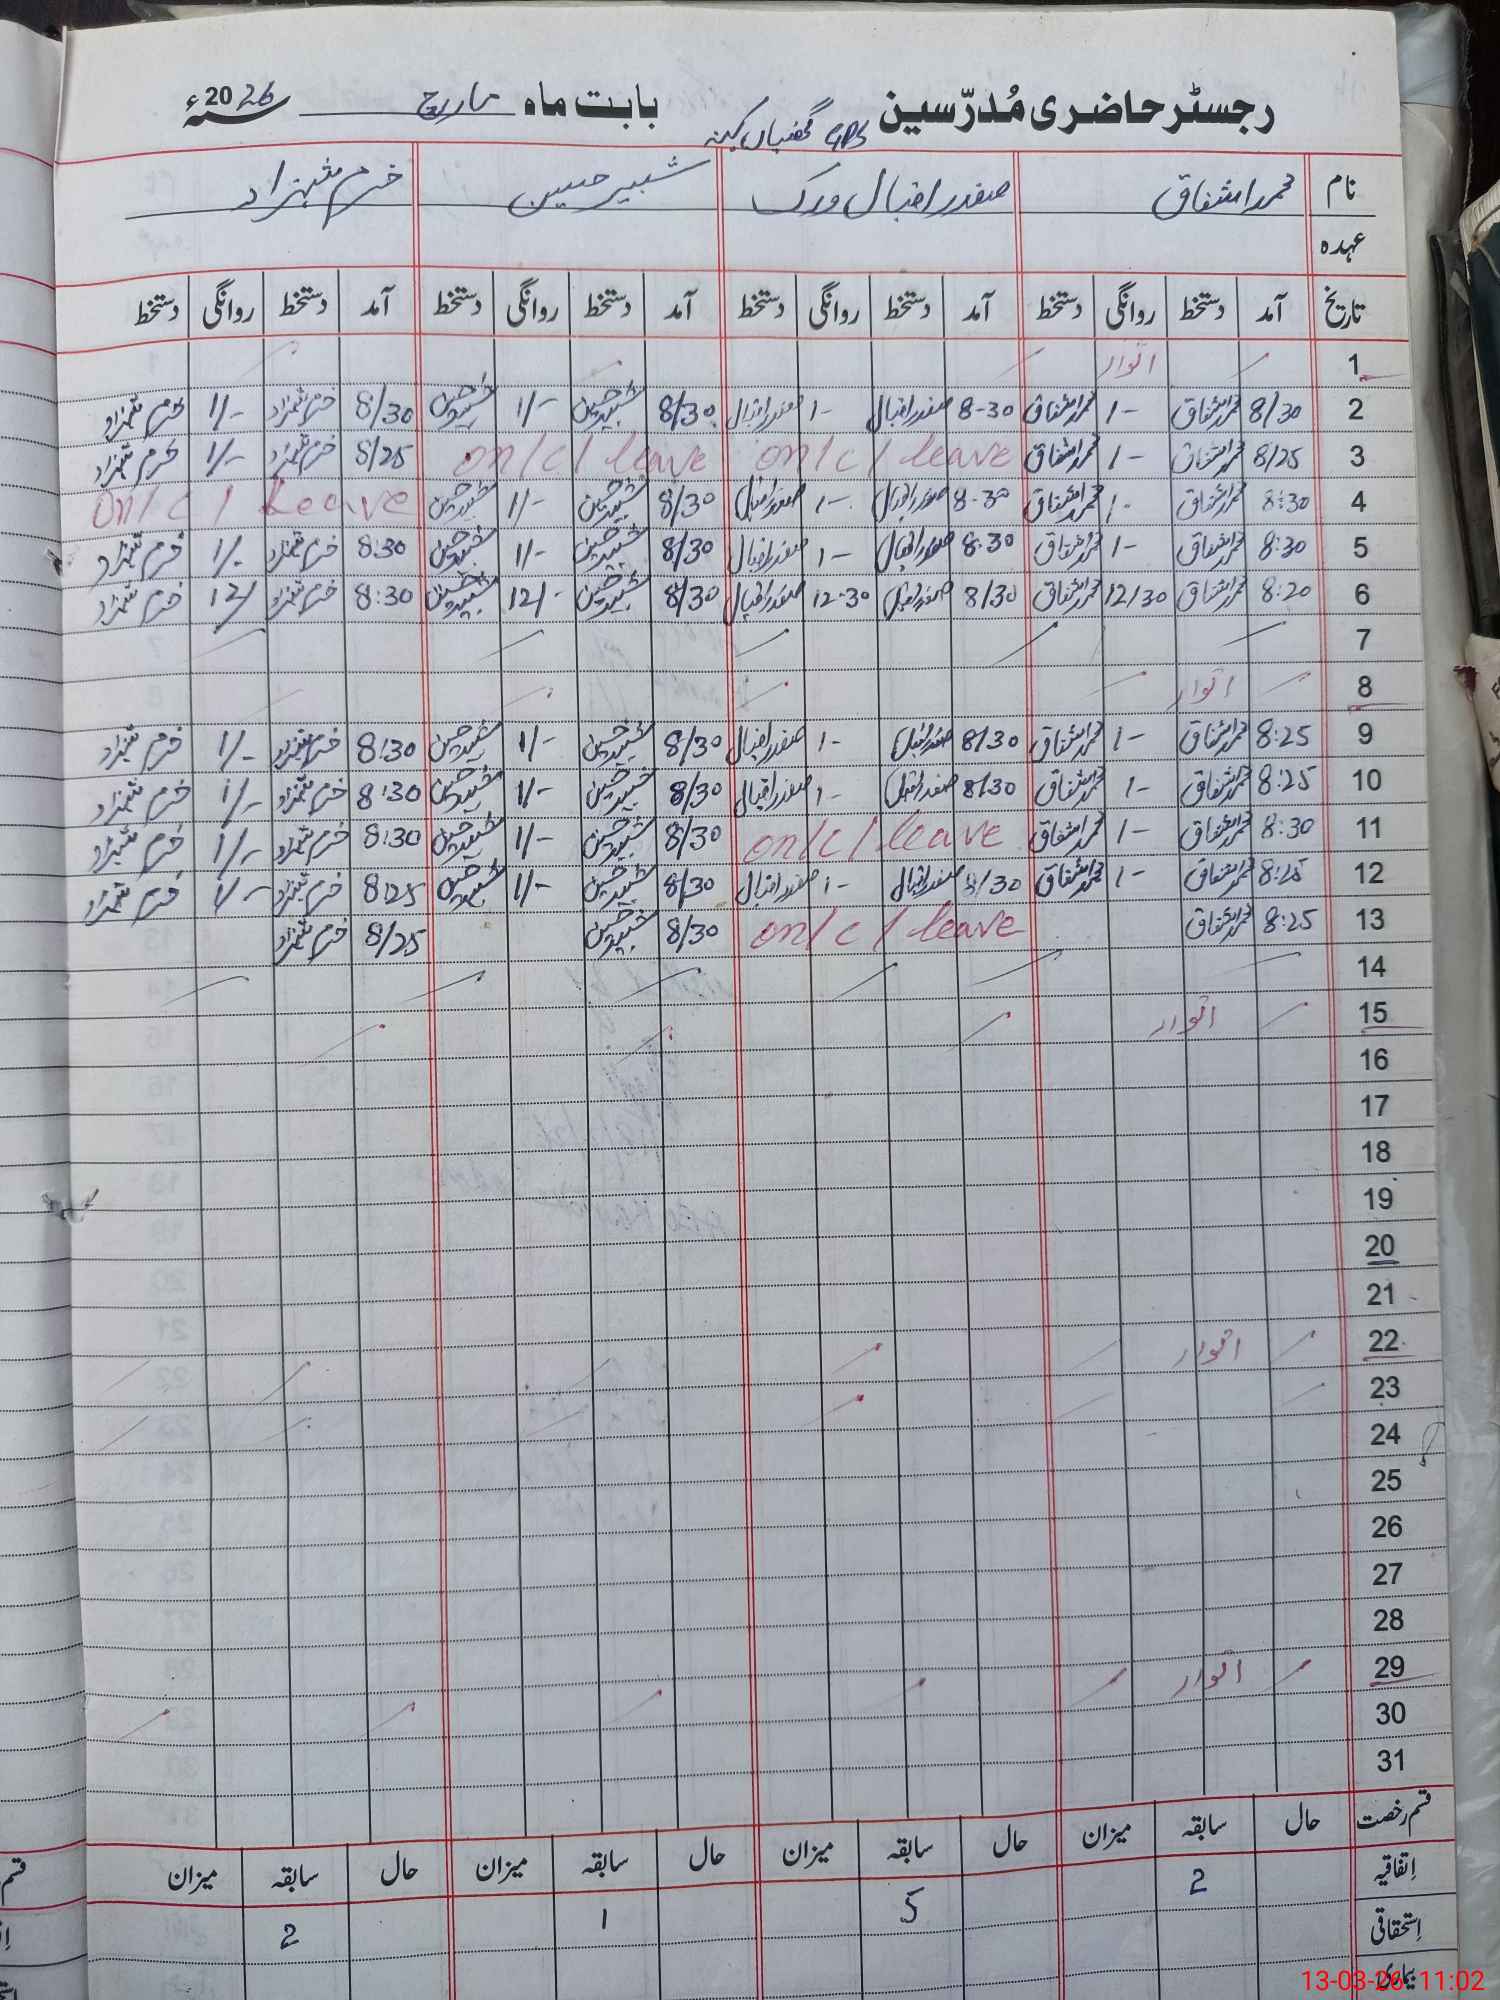 رجسٹر حاضری مُدرّسین GPS بابت ماہ مارچ سنہ 2026ء
نام محمد اشفاق صفدر اقبال ورک شبیر حسین خرم شہزاد
عہدہ
تاریخ آمد دستخط روانگی دستخط آمد دستخط روانگی دستخط آمد دستخط روانگی دستخط آمد دستخط روانگی دستخط
1 اتوار
2 8/30 محمد اشفاق 1- محمد اشفاق 8-30 صفدر اقبال 1- صفدر اقبال 8/30 شبیر حسین 1/- شبیر حسین 8/30 خرم شہزاد 1/- خرم شہزاد
3 8/25 محمد اشفاق 1- محمد اشفاق on/c/leave on/c/leave 8/25 خرم شہزاد 1/- خرم شہزاد
4 8:30 محمد اشفاق 1- محمد اشفاق 8-30 صفدر اقبال 1- صفدر اقبال 8/30 شبیر حسین 1/- شبیر حسین on/c/Leave
5 8:30 محمد اشفاق 1- محمد اشفاق 8:30 صفدر اقبال 1- صفدر اقبال 8/30 شبیر حسین 1/- شبیر حسین 8:30 خرم شہزاد 1/- خرم شہزاد
6 8:20 محمد اشفاق 12/30 محمد اشفاق 8/30 صفدر اقبال 12-30 صفدر اقبال 8/30 شبیر حسین 12/- شبیر حسین 8:30 خرم شہزاد 12/ خرم شہزاد
7
8 اتوار
9 8:25 محمد اشفاق 1- محمد اشفاق 8/30 صفدر اقبال 1- صفدر اقبال 8/30 شبیر حسین 1/- شبیر حسین 8:30 خرم شہزاد 1/- خرم شہزاد
10 8:25 محمد اشفاق 1- محمد اشفاق 8/30 صفدر اقبال 1- صفدر اقبال 8/30 شبیر حسین 1/- شبیر حسین 8:30 خرم شہزاد 1/- خرم شہزاد
11 8:30 محمد اشفاق 1- محمد اشفاق on/c/leave 8/30 شبیر حسین 1/- شبیر حسین 8:30 خرم شہزاد 1/- خرم شہزاد
12 محمد اشفاق 1- محمد اشفاق 8/30 صفدر اقبال 1- صفدر اقبال 8/30 شبیر حسین 1/- شبیر حسین 8:25 خرم شہزاد 1/- خرم شہزاد
13 8:25 محمد اشفاق on/c/leave 8/30 شبیر حسین 8/25 خرم شہزاد
14
15 اتوار
16
17
18
19
20
21
22 اتوار
23
24
25
26
27
28
29 اتوار
30
31
قسم رخصت حال سابقہ میزان حال سابقہ میزان حال سابقہ میزان حال سابقہ میزان
اِتفاقیہ 2 5 1 2
اِستحقاقی
بیماری
13-03-26 11:02